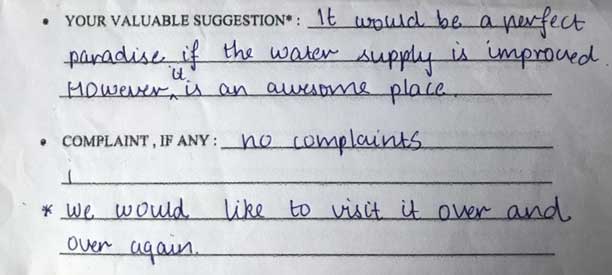 • YOUR VALUABLE SUGGESTION* : It would be a perfect
paradise if the water supply is improved.
However, it is an awesome place.
• COMPLAINT , IF ANY : no complaints
* We would like to visit it over and
over again.